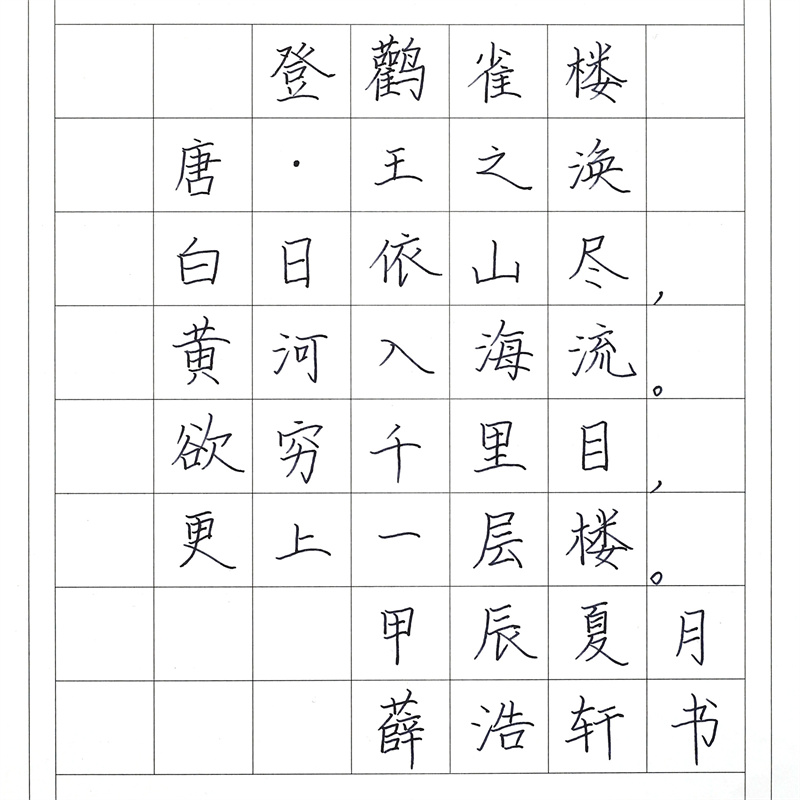 登鹳雀楼
唐·王之涣
白日依山尽，
黄河入海流。
欲穷千里目，
更上一层楼。
甲辰夏月
薛浩轩书